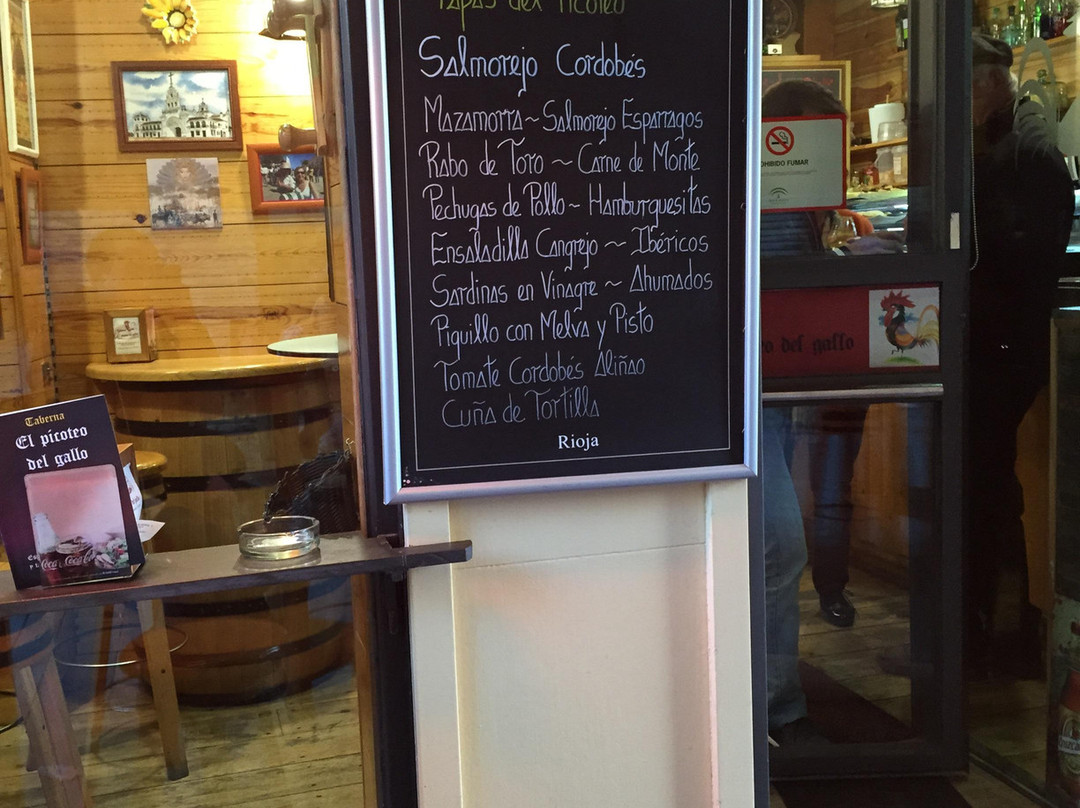 Tapas del Picoteo
Salmorejo Cordobés
Mazamorra ~ Salmorejo Esparragos
Rabo de Toro ~ Carne de Monte
Pechugas de Pollo ~ Hamburguesitas
Ensaladilla Cangrejo ~ Ibéricos
Sardinas en Vinagre ~ Ahumados
Piquillo con Melva y Pisto
Tomate Cordobés Aliñao
Cuña de Tortilla
Rioja
OHIBIDO FUMAR
o del gallo
Taberna
El picoteo
del gallo
Coca-Cola